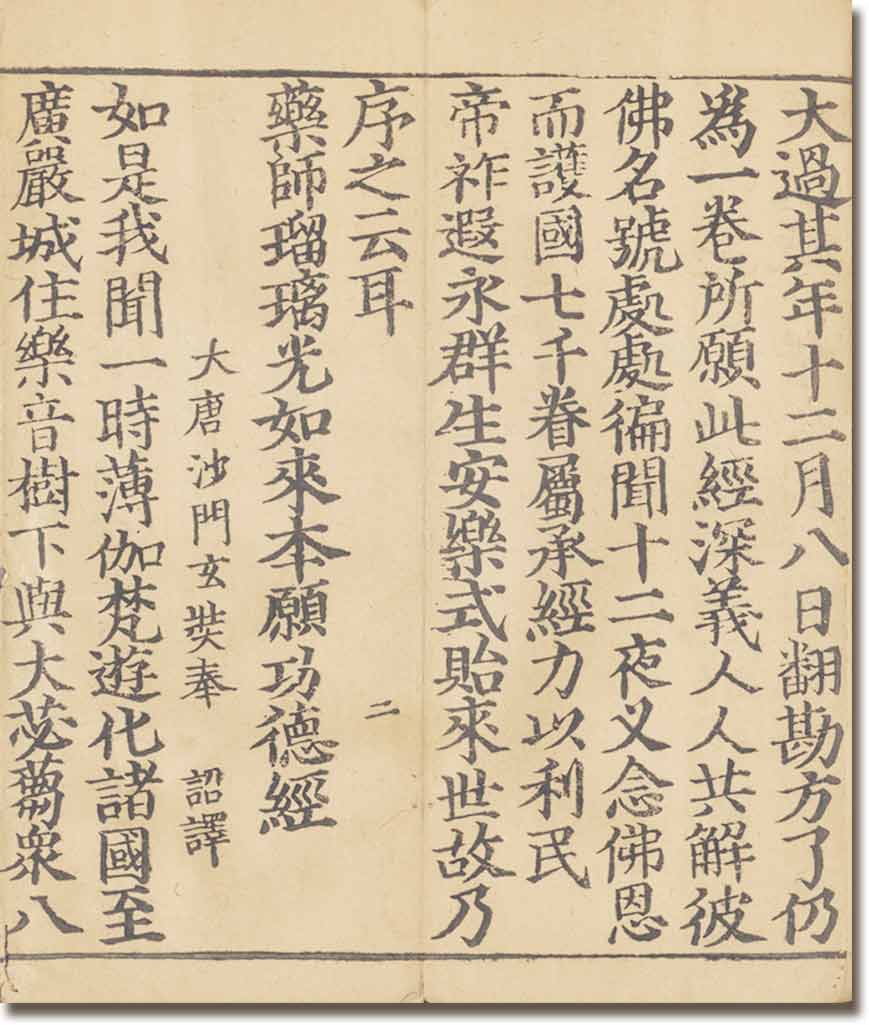 大過其年十二月八日翻勘方了仍
為一卷所願此經深義人人共解彼
佛名號處處徧聞十二夜义念佛恩
而護國七千眷屬承經力以利民
帝祚遐永群生安樂式貽來世故乃
序之云耳
二
藥師瑠璃光如來本願功德經
大唐沙門玄奘奉　詔譯
如是我聞一時薄伽梵遊化諸國至
廣嚴城住樂音樹下與大苾蒭衆八